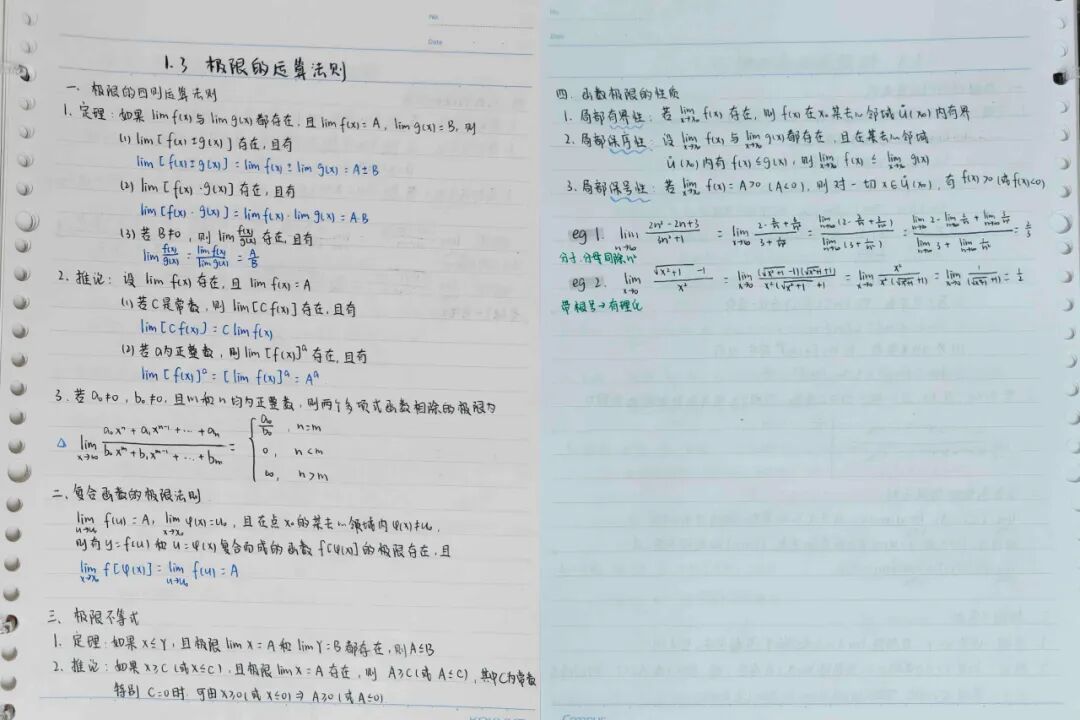 No.
Date
1.3 极限的运算法则
一. 极限的四则运算法则
1. 定理: 如果 lim f(x) 与 lim g(x) 都存在, 且 lim f(x) = A, lim g(x) = B, 则
(1) lim [f(x) ± g(x)] 存在, 且有
lim [f(x) ± g(x)] = lim f(x) ± lim g(x) = A ± B
(2) lim [f(x) · g(x)] 存在, 且有
lim [f(x) · g(x)] = lim f(x) · lim g(x) = A·B
(3) 若 B≠0, 则 lim f(x)/g(x) 存在, 且有
lim f(x)/g(x) = lim f(x)/lim g(x) = A/B
2. 推论: 设 lim f(x) 存在, 且 lim f(x) = A
(1) 若 C 是常数, 则 lim [C f(x)] 存在, 且有
lim [C f(x)] = C lim f(x)
(2) 若 a 为正整数, 则 lim [f(x)]^a 存在, 且有
lim [f(x)]^a = [lim f(x)]^a = A^a
3. 若 a₀≠0, b₀≠0, 且 m 和 n 均为正整数, 则两个多项式函数相除的极限为
△ lim x→∞ (a₀xⁿ + a₁xⁿ⁻¹ + ··· + aₙ)/(b₀xᵐ + b₁xᵐ⁻¹ + ... + bₘ) = { a₀/b₀, n=m
0, n<m
∞, n>m
二. 复合函数的极限法则
lim u→u₀ f(u) = A, lim x→x₀ φ(x) = u₀, 且在点 x₀ 的某去心领域内 φ(x) ≠ u₀,
则有 y = f(u) 和 u = φ(x) 复合而成的函数 f[φ(x)] 的极限存在, 且
lim x→x₀ f[φ(x)] = lim u→u₀ f(u) = A
三. 极限不等式
1. 定理: 如果 X≤Y, 且极限 lim X = A 和 lim Y = B 都存在, 则 A≤B
2. 推论: 如果 X≥C (或 X≤C), 且极限 lim X = A 存在, 则 A≥C (或 A≤C), 其中 C 为常数
特别 C=0 时. 可由 X≥0 (或 X≤0) ⇒ A≥0 (或 A≤0)
No.
Date
四. 函数极限的性质
1. 局部有界性: 若 lim x→x₀ f(x) 存在, 则 f(x) 在 x₀ 某去心邻域 Ů(x₀) 内有界
2. 局部保序性: 设 lim x→x₀ f(x) 与 lim x→x₀ g(x) 都存在, 且在某去心邻域
Ů(x₀) 内有 f(x) ≤ g(x), 则 lim x→x₀ f(x) ≤ lim x→x₀ g(x)
3. 局部保号性: 若 lim x→x₀ f(x) = A>0 (A<0), 则对一切 x∈Ů(x₀), 有 f(x)>0 (或 f(x)<0)
eg 1. lim n→∞ (2n² - 2n + 3)/(3n² + 1)
分子. 分母同除 n²
eg 2. lim x→0 (√(x²+1) - 1)/x² = lim x→0 (√(x²+1) - 1)(√(x²+1) + 1)/(x²(√(x²+1) + 1)) = lim x→0 x²/(x²(√(x²+1) + 1)) = lim x→0 1/(√(x²+1) + 1) = 1/2
带根号→有理化
Campus